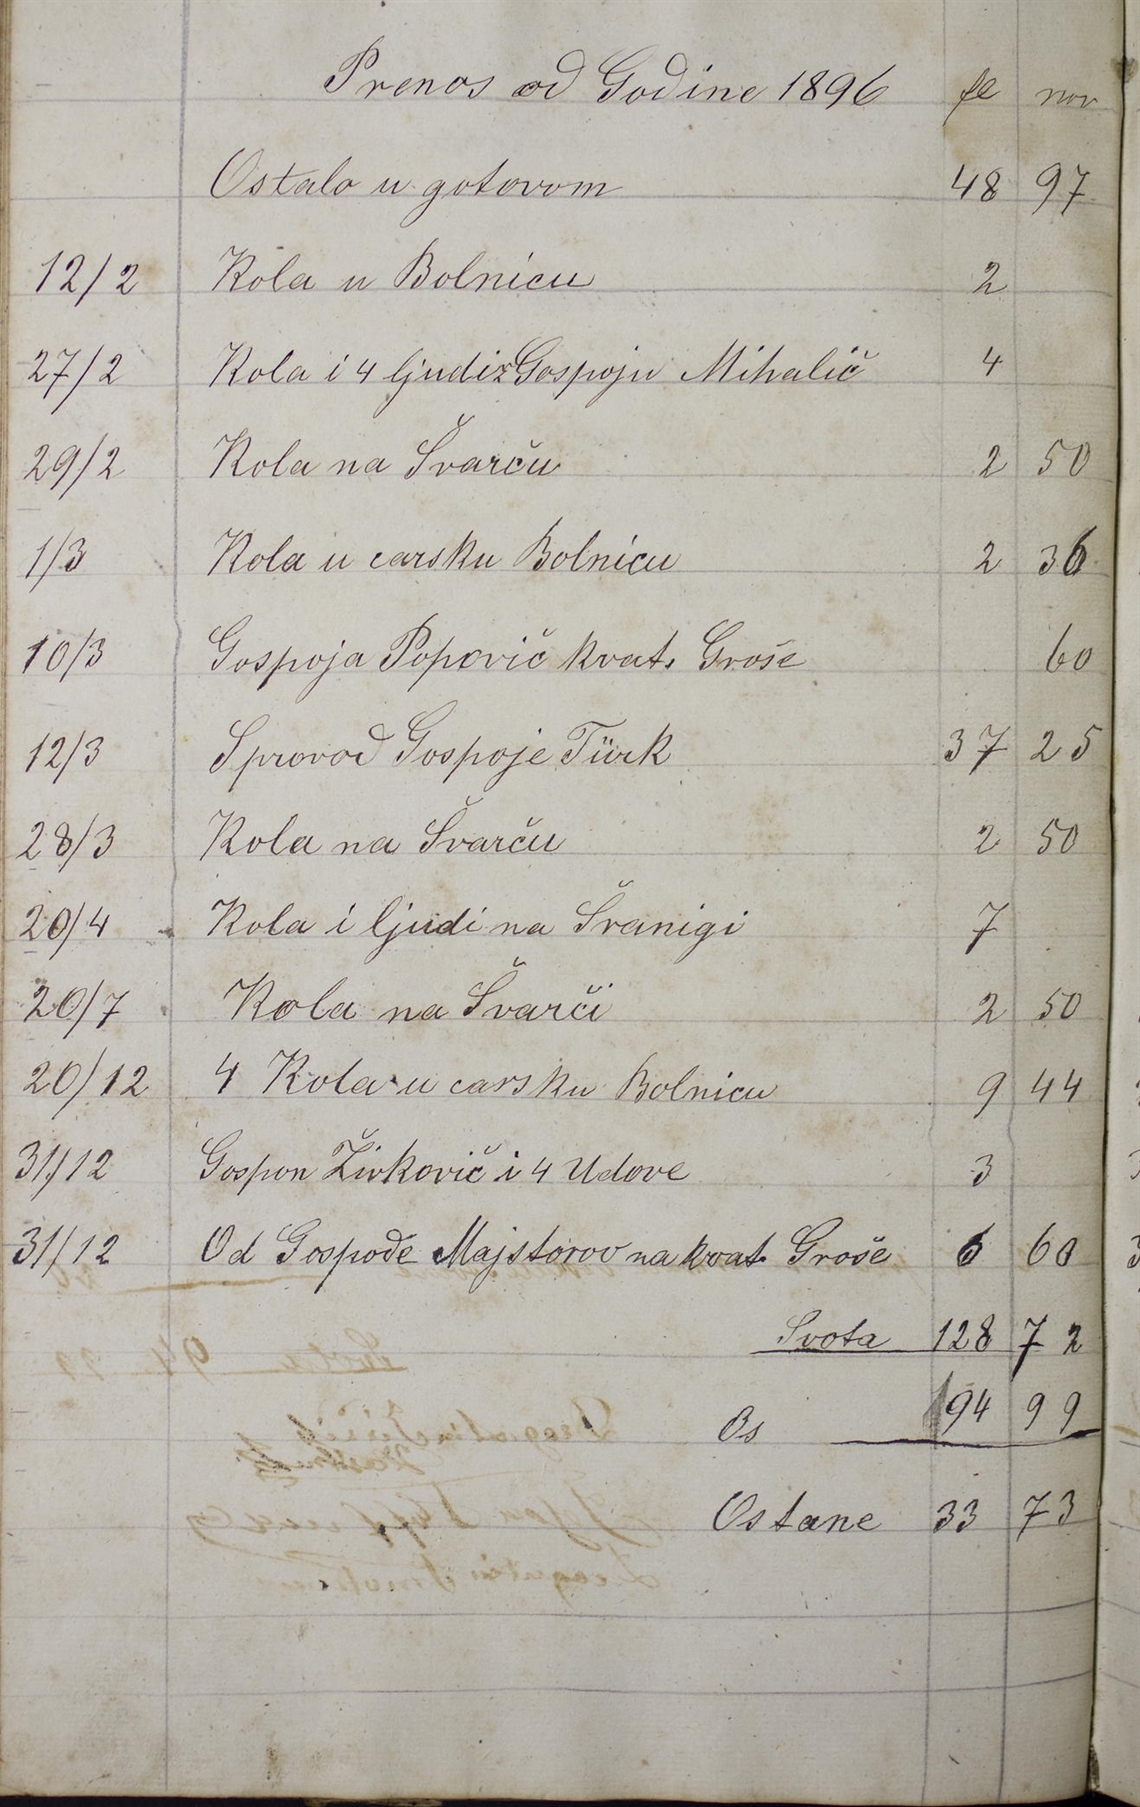 Prenos od Godine 1896 fl nov
Ostalo u gotovom 48 97
12/2 Kola u Bolnicu 2
27/2 Kola i 4 ljudi z Gospoju Mihalič 4
29/2 Kola na Švarču 2 50
1/3 Kola u carsku Bolnicu 2 36
10/3 Gospoja Popovič kvat. Groše 60
12/3 Sprovod Gospoje Türk 37 25
28/3 Kola na Švarču 2 50
20/4 Kola i ljudi na Švanigi 7
20/7 Kola na Švarči 2 50
20/12 4 Kola u carsku Bolnicu 9 44
31/12 Gospon Živkovič i 4 Udove 3
31/12 Od Gospode Majstorov na kvat. Groše 6 60
Svota 128 72
Os 94 99
Ostane 33 73